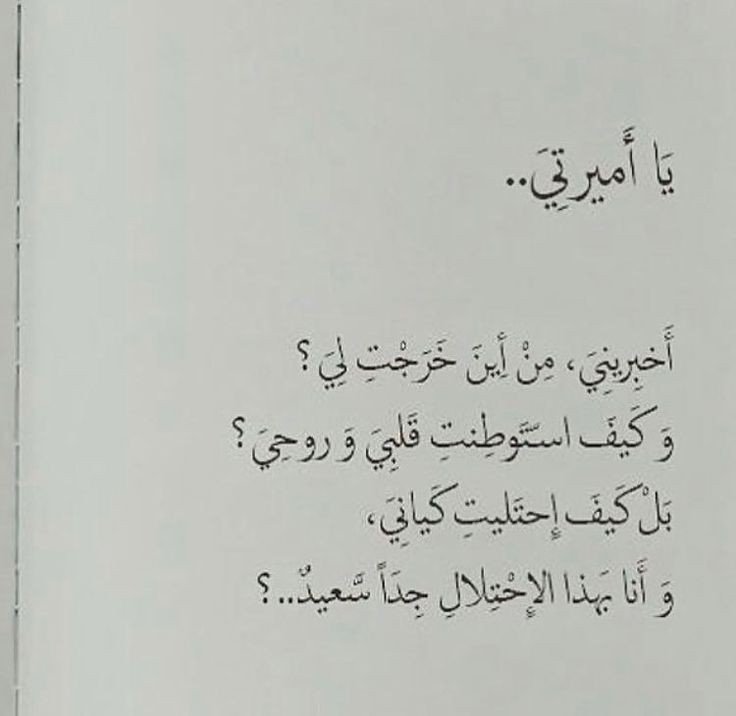 يَا أَميرتِيَ..
أَخبِرِينِيَ، مِنْ أَينَ خَرَجْتِ لِيَ؟
وَ كَيفَ استَوطِنتِ قَلبِيَ وَ روحِيَ؟
بَلْ كَيفَ إِحتَليتِ كَيانِيَ،
وَ أَنا بَهذا الإِحْتِلالِ جِدَاً سَّعيدٌ..؟